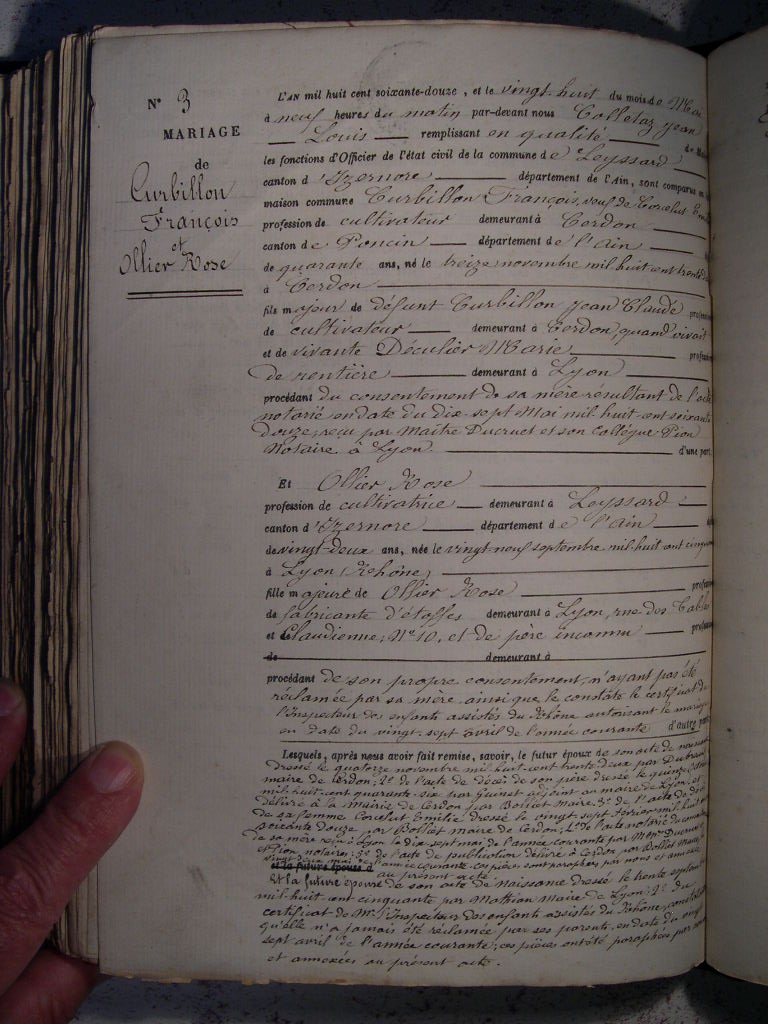 N° 3
MARIAGE
de
Curbillon
François
et
Ollier Rose
L'AN mil huit cent soixante-douze, et le vingt-huit du mois de Mai
à neuf heures du matin par-devant nous Colletaz Jean
Louis remplissant en qualité de
les fonctions d'Officier de l'état civil de la commune de Leyssard
canton d'Izernore département de l'Ain, sont comparus en
maison commune Curbillon François, veuf de
profession de cultivateur demeurant à Cerdon
canton de Poncin département de l'Ain
de quarante ans, né le treize novembre mil huit cent trente
à Cerdon
fils majeur de défunt Curbillon Jean Claude
de cultivateur demeurant à Cerdon, quand vivait
et de vivante Déculier Marie
de rentière demeurant à Lyon
procédant du consentement de sa mère résultant de l'acte
notarié en date du dix-sept Mai mil huit cent soixante
douze, reçu par Maître Ducruet et son collègue Pion
Notaire à Lyon. d'une part,
Et Ollier Rose
profession de cultivatrice demeurant à Leyssard
canton d'Izernore département de l'Ain
de vingt-deux ans, née le vingt-neuf septembre mil-huit-cent
à Lyon (Rhône)
fille majeure de Ollier Rose
de fabricante d'étoffes demeurant à Lyon, rue des Tables
Claudienne, N° 10, et de père inconnu
de demeurant à
procédant de son propre consentement, n'ayant pas été
réclamée par sa mère ainsi que le constate le certificat de
l'Inspecteur des enfants assistés du Rhône autorisant le mariage
en date du vingt-sept avril de l'année courante d'autre part
Lesquels, après nous avoir fait remise, savoir, le futur époux de son acte de naissance
dressé le quatorze novembre mil huit cent trente deux par
maire de Cerdon; 2° de l'acte de décès de son père dressé le quinze
mil-huit-cent quarante-six par Guinet adjoint au maire de Lyon, et
délivré à la mairie de Cerdon par Bollet Maire. 3° de l'acte de décès
de sa femme Emilie dressé le vingt-sept février mil huit
soixante douze par Bollet maire de Cerdon; 4° de l'acte notarié du
de sa mère reçu à Lyon le dix sept mai de l'année courante par
et Pion, notaires; 5° de l'acte de publication délivré à Cerdon par Bollet Maire
vingt deux mai de l'année courante ces pièces sont paraphées par nous et
et la future épouse d au présent acte.
Et la future épouse de son acte de Naissance dressé le trente septembre
mil huit cent cinquante par Mathian Maire de Lyon; 2° du
certificat de Mr l'Inspecteur des enfants assistés du Rhône,
qu'elle n'a jamais été réclamée par ses parents en date du vingt
sept avril de l'année courante, ces pièces ont été paraphées par
et annexées au présent acte.